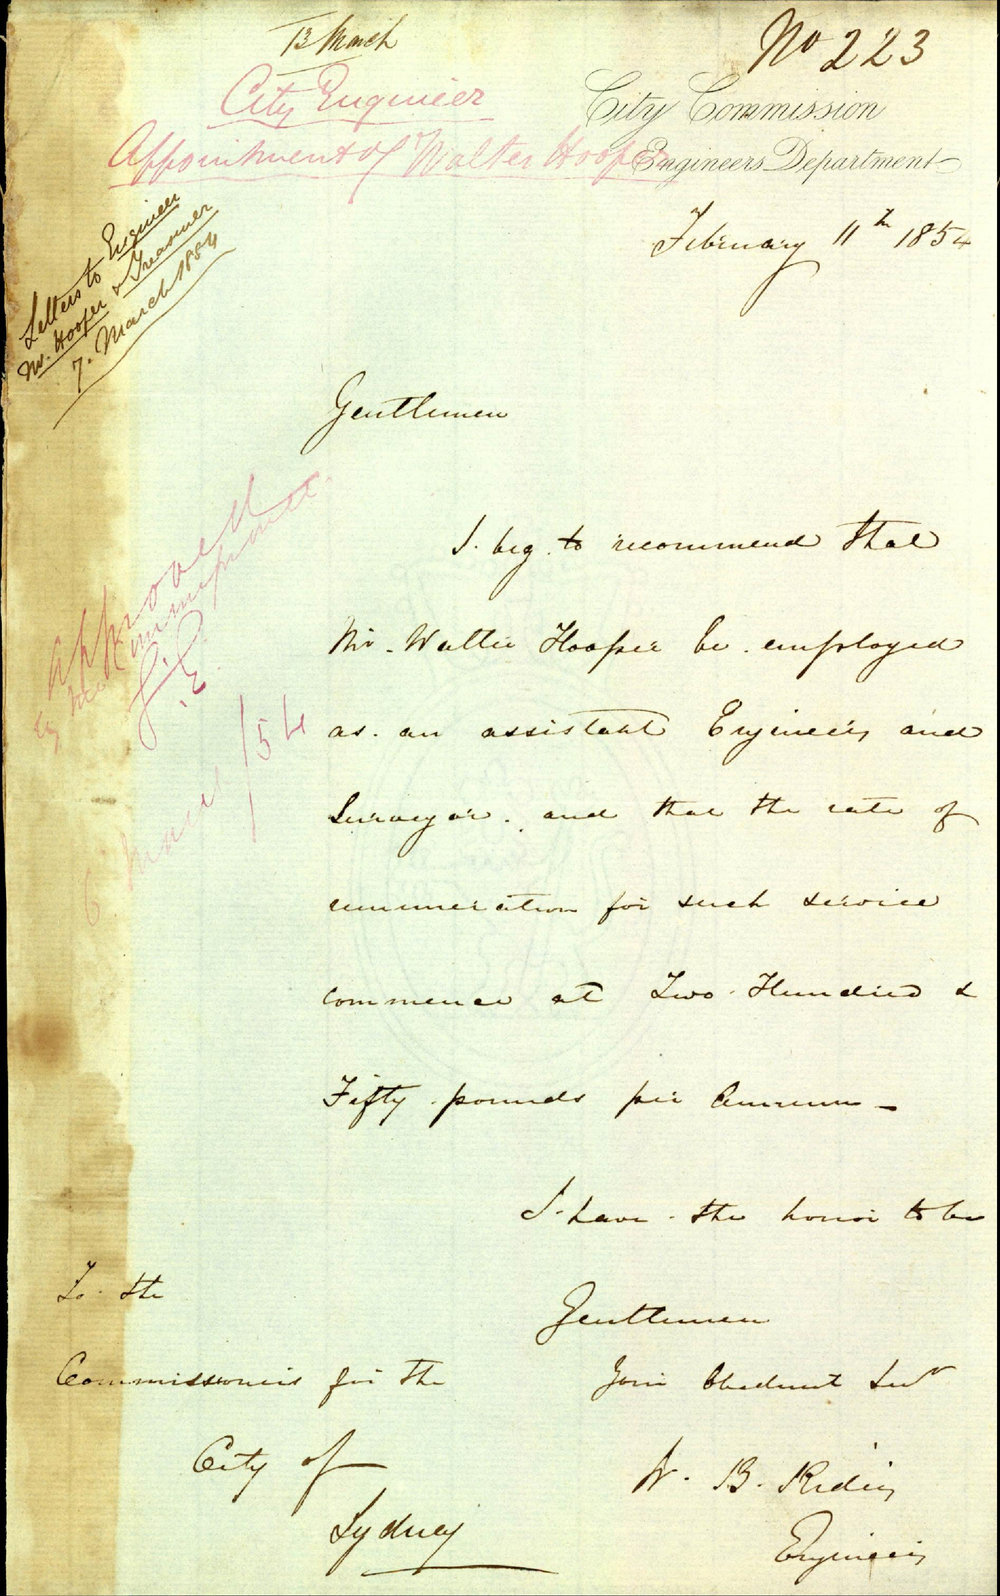 13 March
No 223
City Engineer
City Commission
Appointment of Walter Hooper
Engineers Department
February 11th 1854
Letters to Engineer
Mr. Hooper & Treasurer
7. March 1854
Gentlemen
I. beg. to recommend that
Mr. Walter Hooper be. employed
as. an assistant Engineer and
Surveyor. and that the rate of
remuneration for such service
commence at Two Hundred &
Fifty pounds per Annum -
Approved
6 March /54
I. have. the honor to be
Gentlemen
Your Obedient Servt
W. B. Rider
Engineer
To. the
Commissioners for the
City of
Sydney